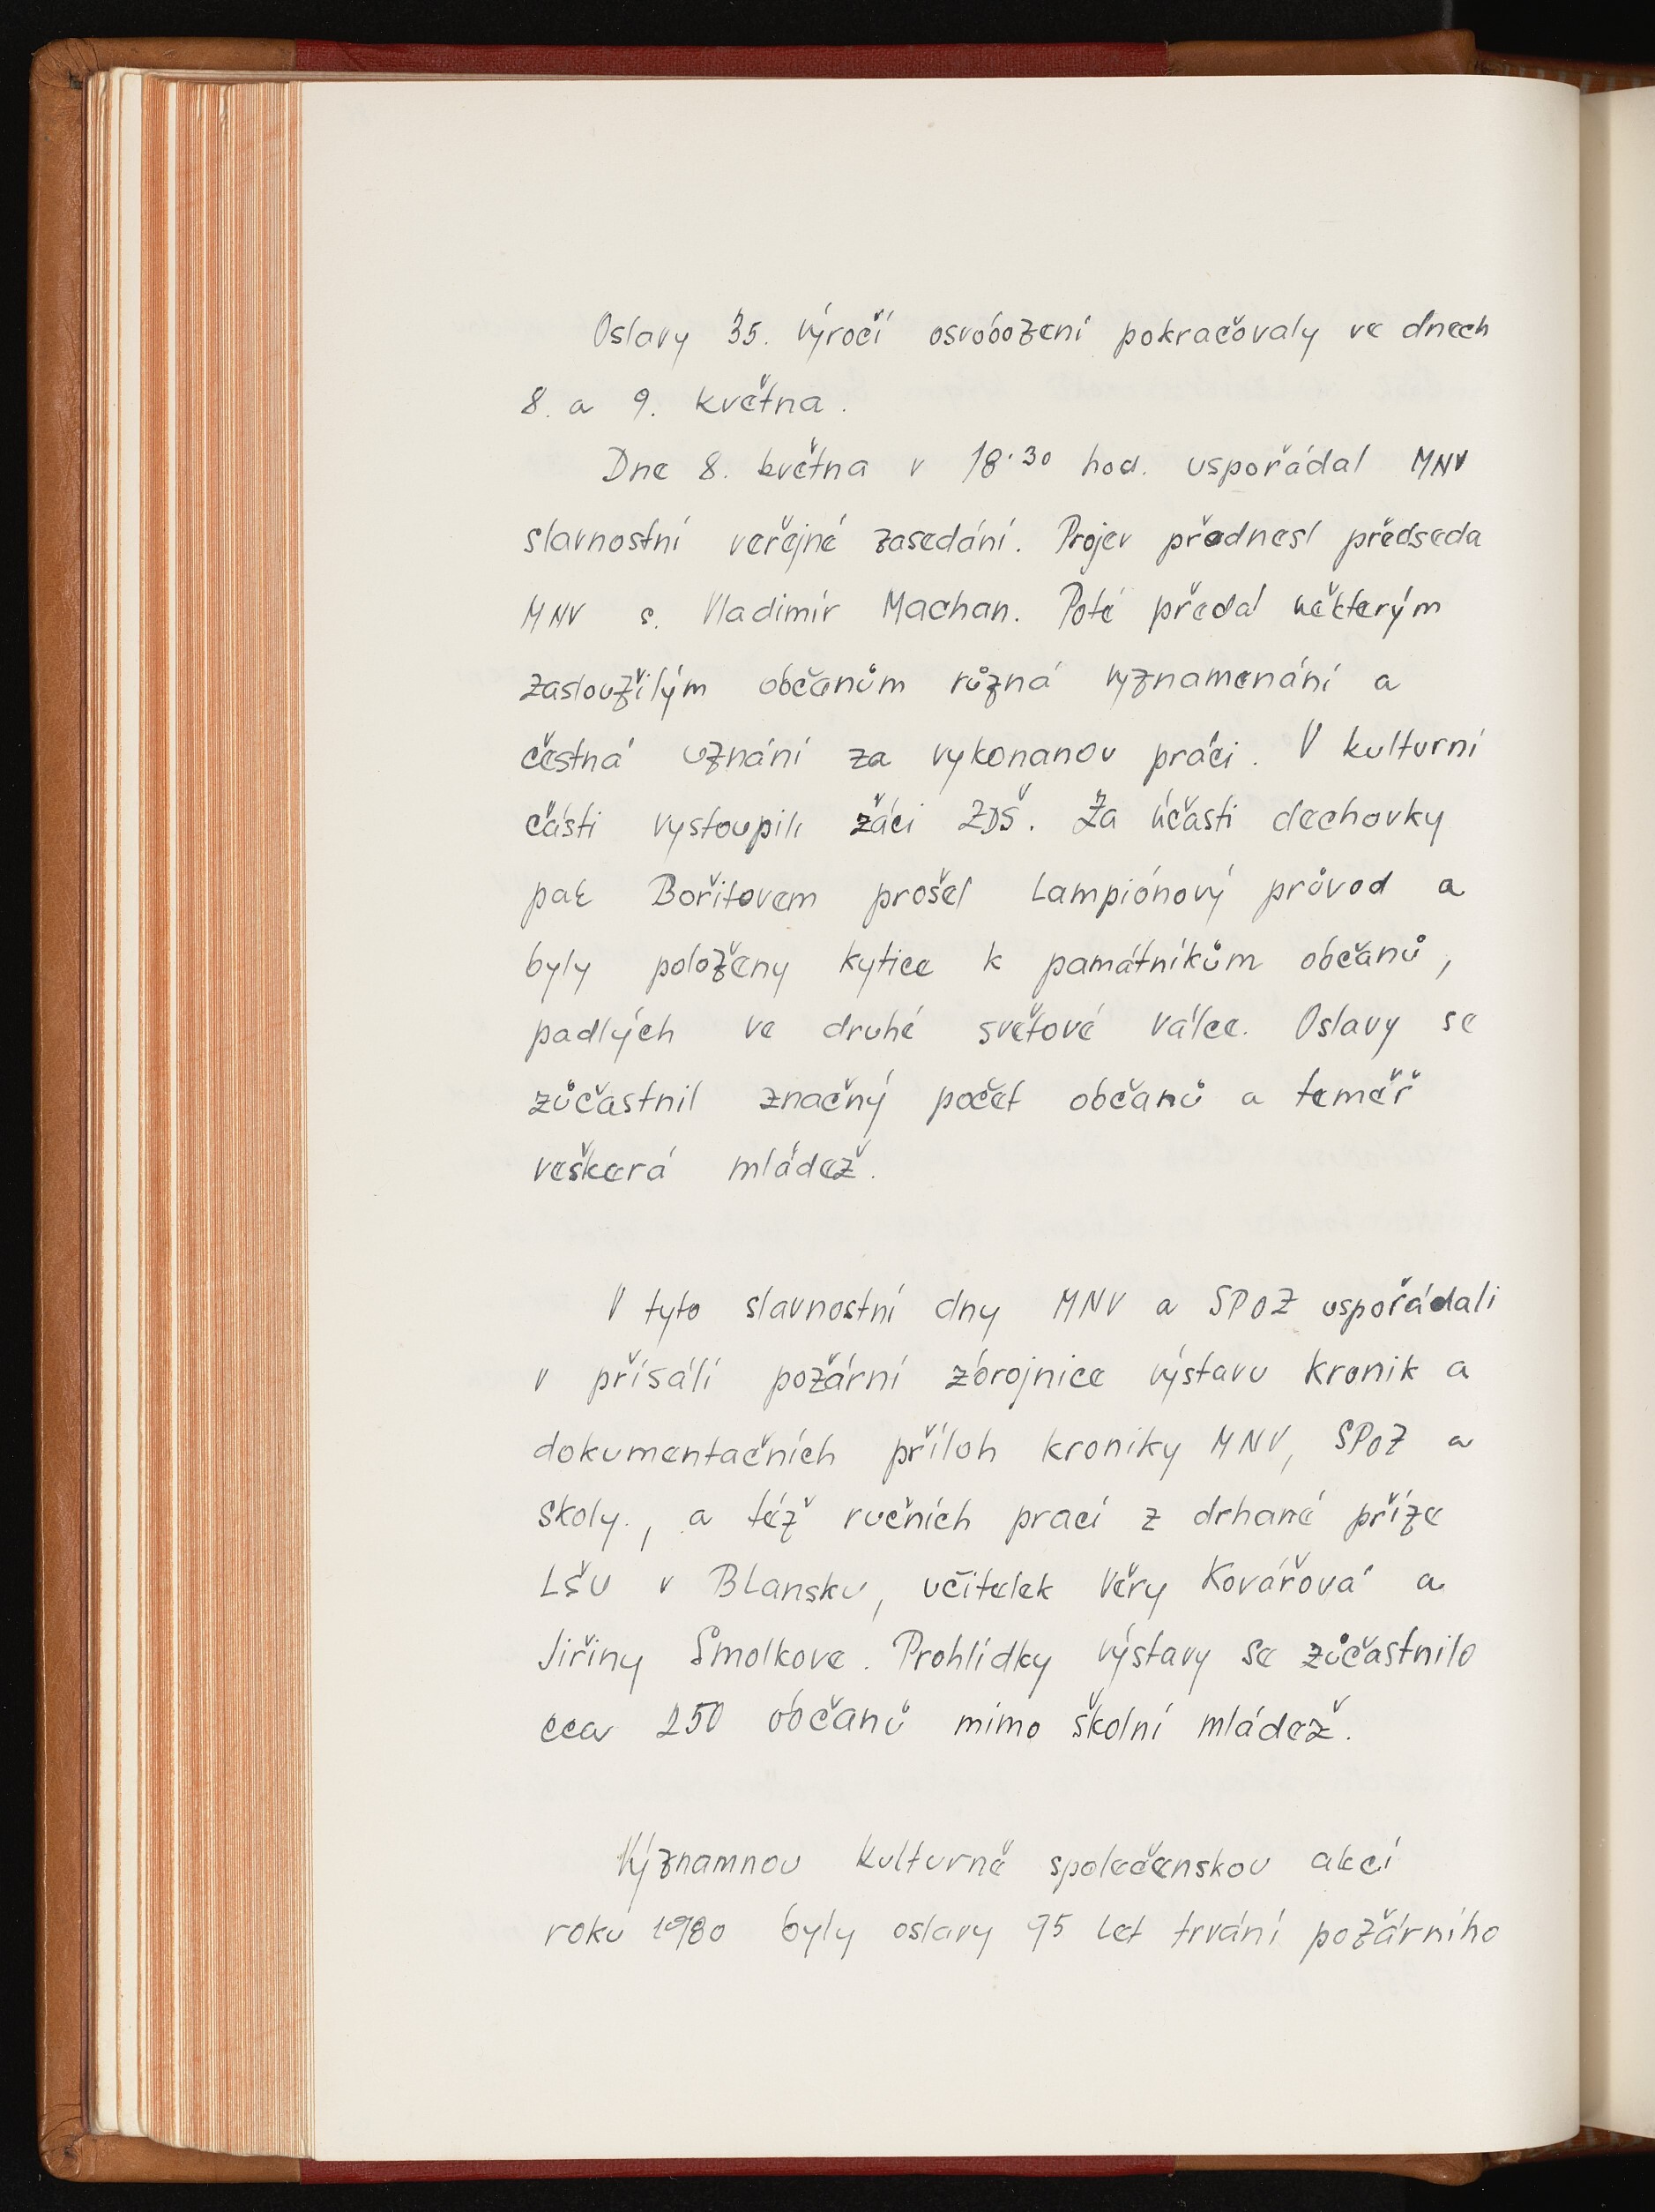 Oslavy 35. výročí osvobození pokračovaly ve dnech
8. a 9. května.
Dne 8. května v 18·30 hod. uspořádal MNV
slavnostní veřejné zasedání. Projev přednesl předseda
MNV s. Vladimír Machan. Poté předal některým
zasloužilým občanům různá vyznamenání a
čestná uznání za vykonanou práci. V kulturní
části vystoupili žáci ZDŠ. Za účasti dechovky
pak Bořitovem prošel lampiónový průvod a
byly položeny kytice k památníkům občanů,
padlých ve druhé světové válce. Oslavy se
zůčastnil značný počet občanů a teměř
veškerá mládež.
V tyto slavnostní dny MNV a SPOZ uspořádali
v přísálí požární zbrojnice výstavu kronik a
dokumentačních příloh kroniky MNV, SPOZ a
školy., a též ručních prací z drhané příze
LŠU v Blansku, učitelek Věry Kovářová a
Jiřiny Smolkove. Prohlídky výstavy se zůčastnilo
cca 250 občanů mimo školní mládež.
Významnou kulturně společenskou akcí
roku 1980 byly oslavy 95 let trvání požárního